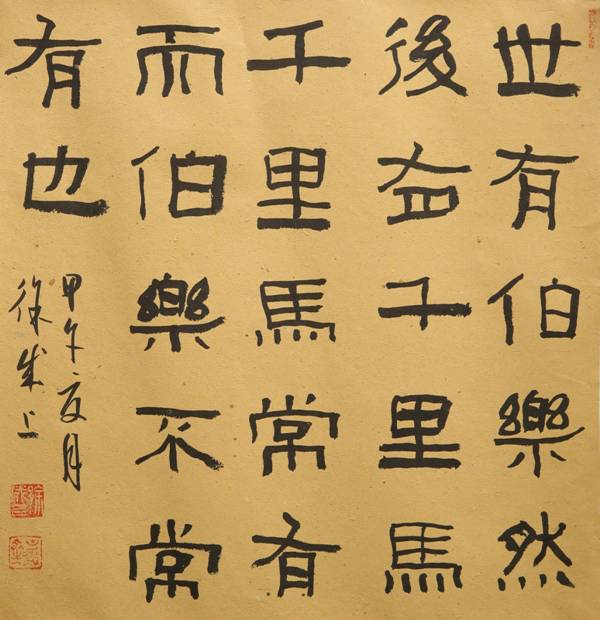 世有伯樂然
後有千里馬
千里馬常有
而伯樂不常
有也
甲午夏月
徐